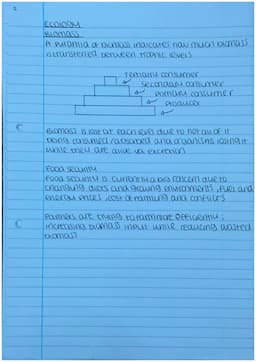 2
ECOLOGY
BIOMASS
A pyramid of biomass indicates how much biomass
is transferred between trophic levels
tertiary consumer
secondary consumer
primary consumer
producer
Biomass is lost at each level due to not all of it
being consumed / absorbed and organisms losing it
while they are alive via excretion
Food security
Food security is currently a big concern due to
changing diets and growing environments, fuel and
energy prices, cost of farming and conflicts
Farmers are trying to farm more efficiently,
increasing biomass input while reducing wasted
biomass